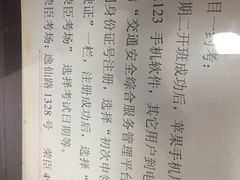 目一约考：
期二开班成功后，苹果手机
123 手机软件，其它用户到电
“交通安全综合服务管理平台
身份证号注册，选择“初次申
驶证”一栏，注册成功后，选择“
荣臣考场” 选择考试日期等。
荣臣考场：逸仙路 1328 号 荣臣 4